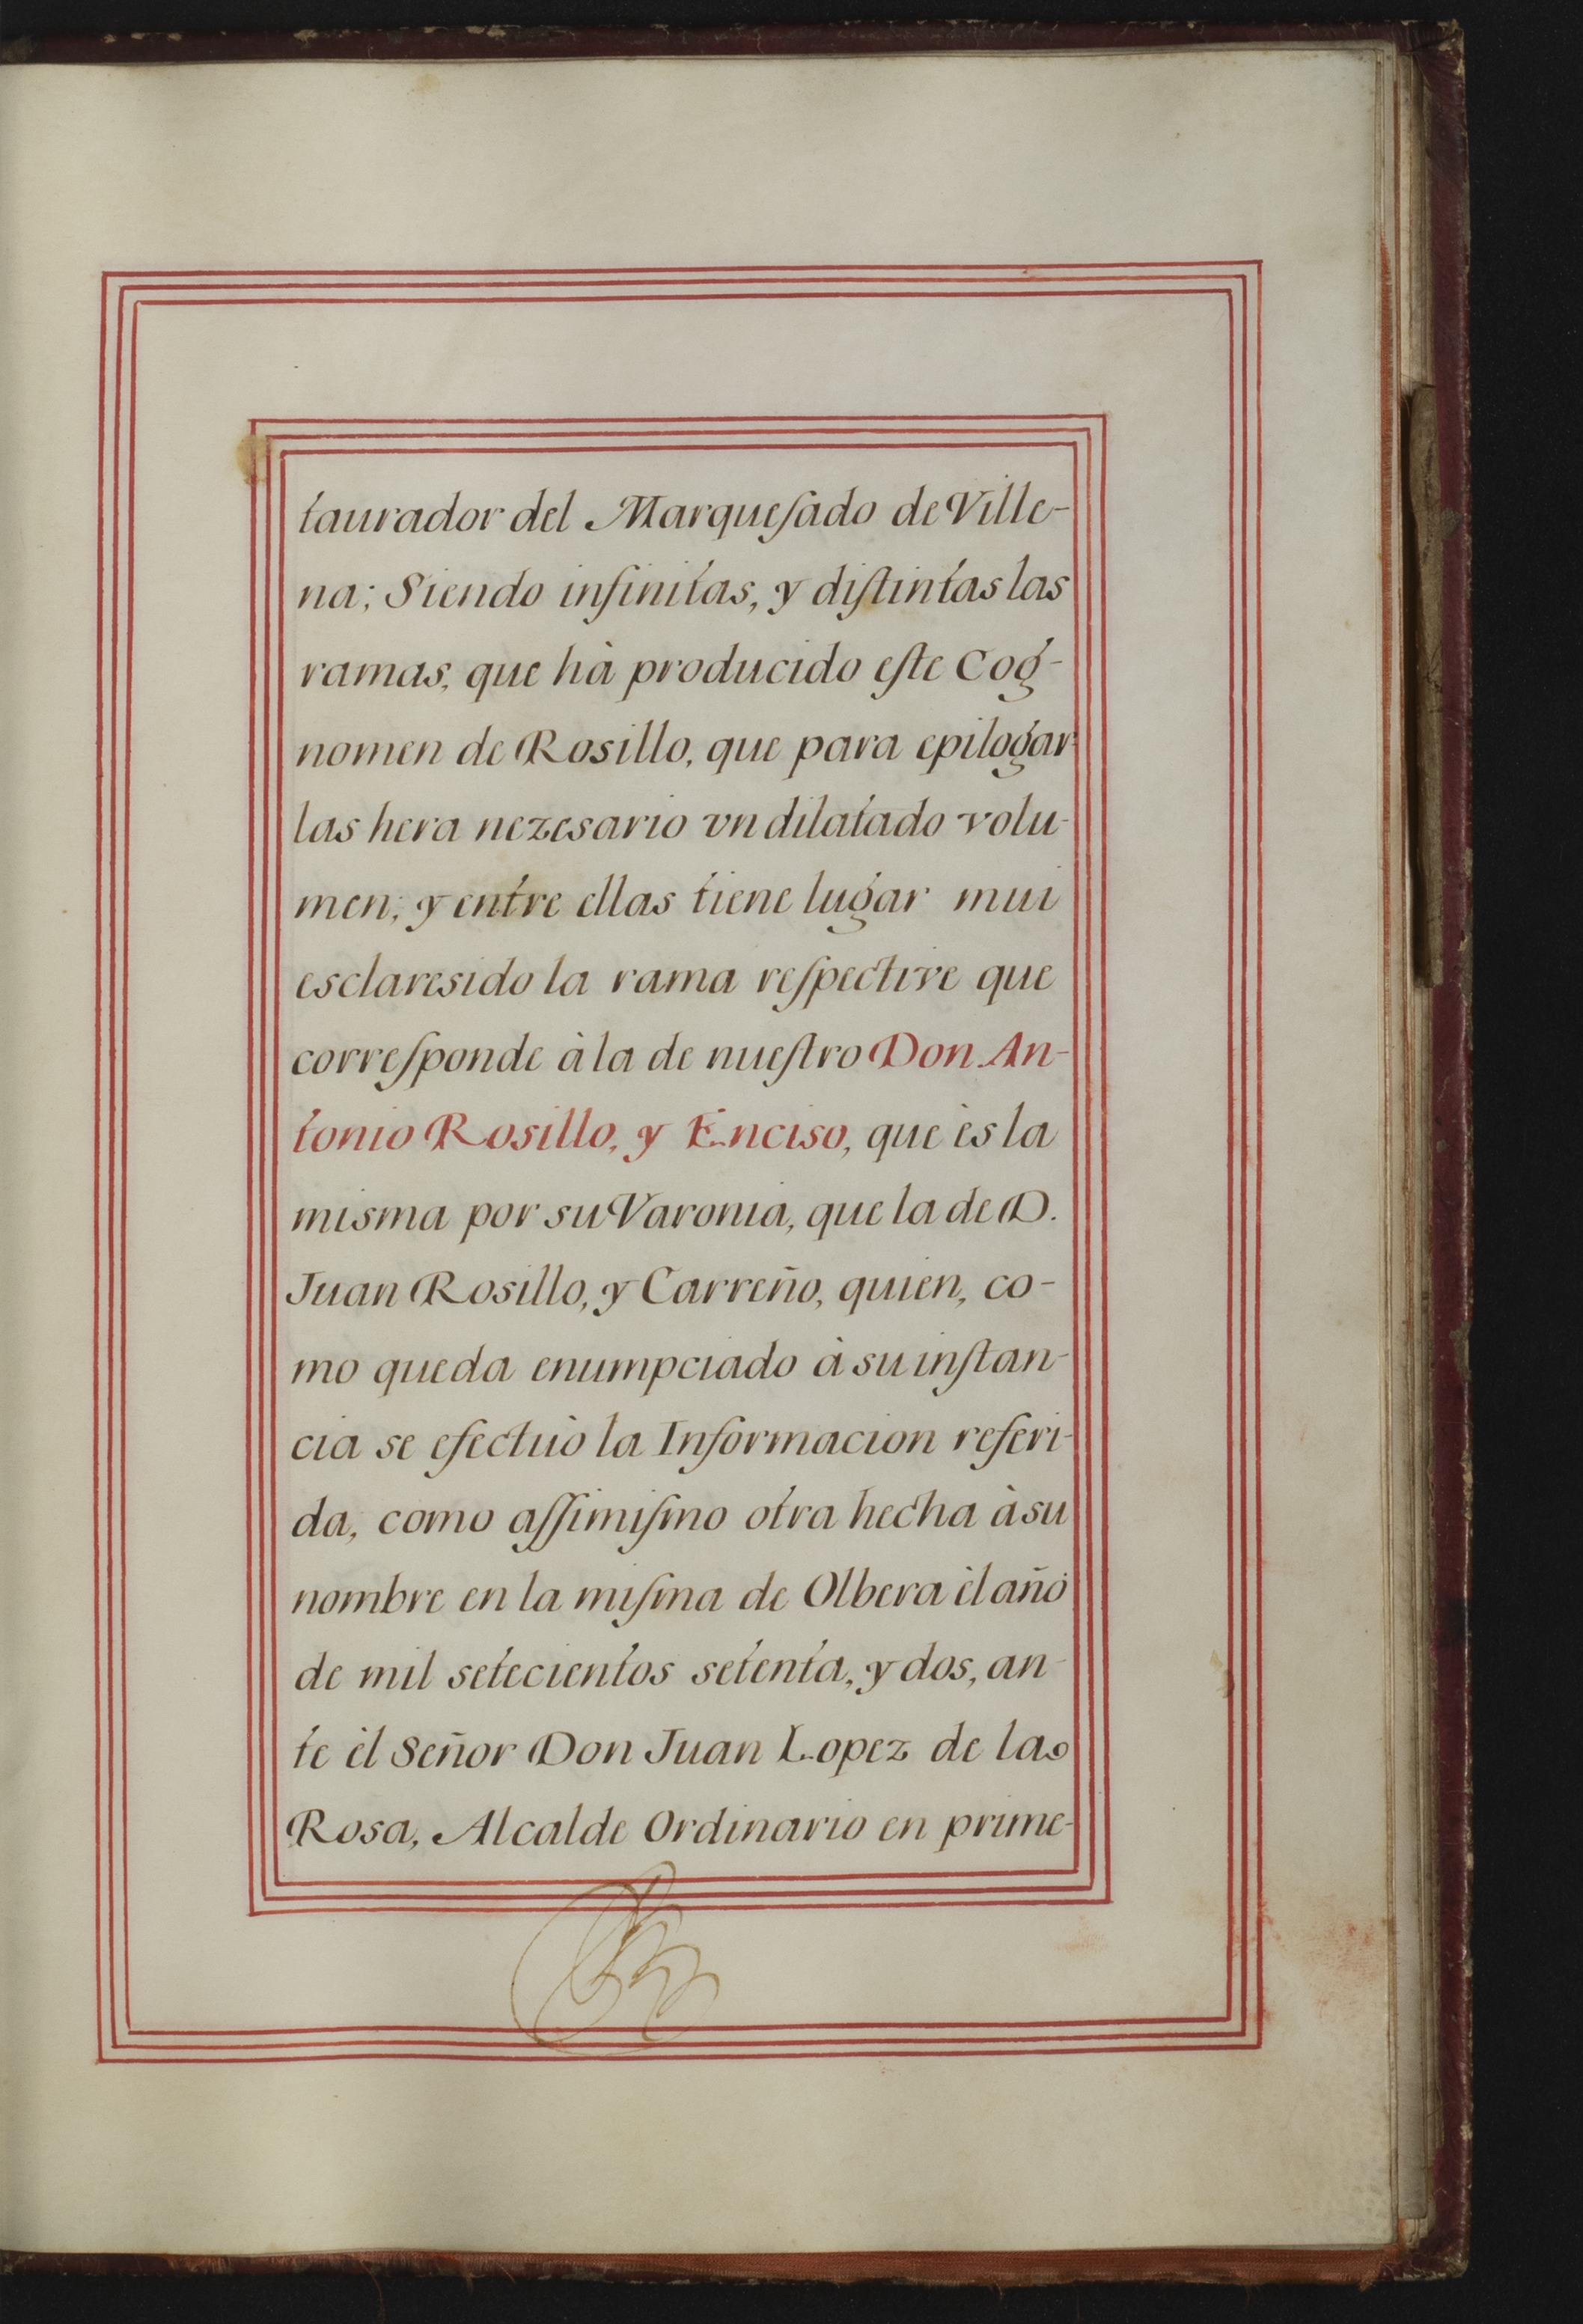 taurador del Marqueſado de Ville-
na; Siendo infinitas, y diſtintas las
ramas, que hà producido eſte Cog-
nomen de Rosillo, que para epilogar
las hera nezesario vn dilatado volu-
men; y entre ellas tiene lugar mui
esclaresido la rama reſpective que
correſponde à la de nueſtro Don An-
tonio Rosillo, y Enciso, que ès la
misma por su Varonia, que la de D.
Juan Rosillo, y Carreño, quien, co-
mo queda enumpciado à su inſtan-
cia se efectuò la Informacion referi-
da, como aſſimiſmo otra hecha à su
nombre en la miſma de Olbera èl año
de mil setecientos setenta, y dos, an-
te èl Señor Don Juan Lopez de la
Rosa, Alcalde Ordinario en prime-